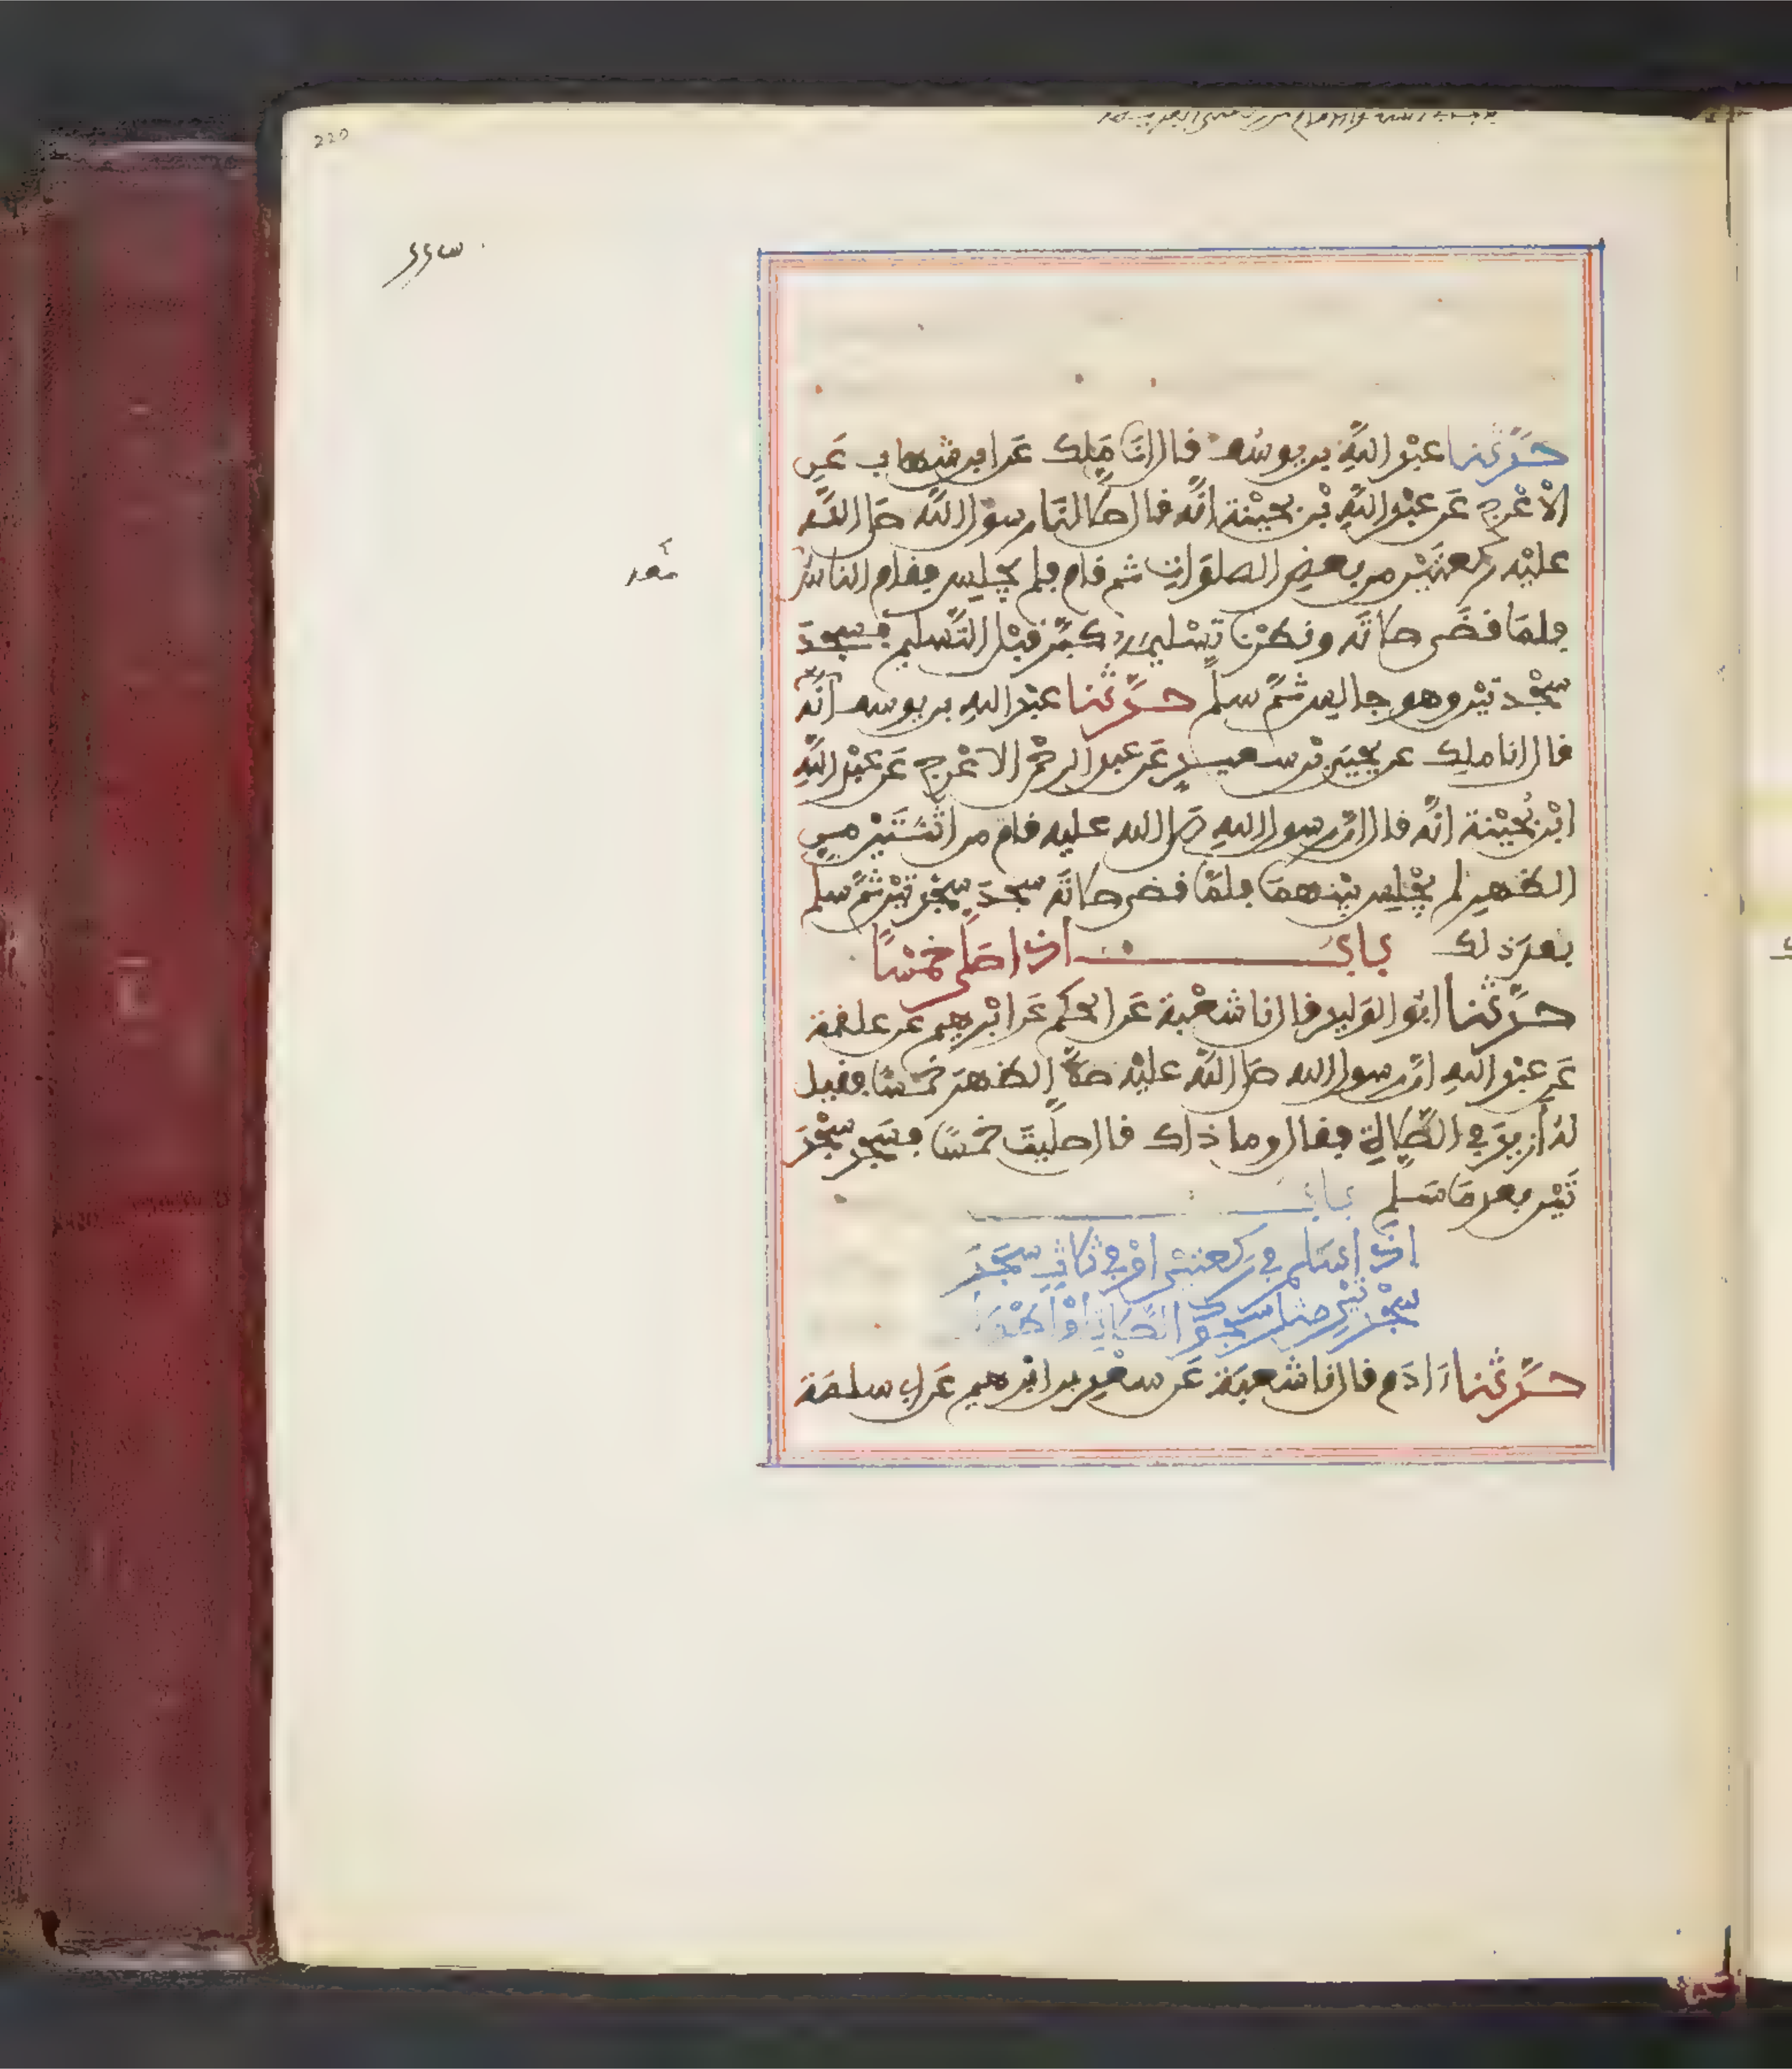 220
حدثنا عبد الله بن يوسف قال انا ملك عن ابن شهاب عن
الاعرج عن عبد الله بن بحينة انه قال صلى لنا رسول الله صلى الله
عليه ركعتين من بعض الصلوات ثم قام فلم يجلس فقام الناس
معه
فلما قضى صلاته ونظرنا تسليمه كبر قبل التسليم فسجد
سجدتين وهو جالس ثم سلم حدثنا عبد الله بن يوسف انه
قال انا ملك عن يحيى بن سعيد عن عبد الرحمن الاعرج عن عبد الله
ابن بحينة انه قال ان رسول الله صلى الله عليه قام من اثنتين من
الظهر لم يجلس بينهما فلما قضى صلاته سجد سجدتين ثم سلم
بعد ذلك باب اذا صلى خمسا
حدثنا ابو الوليد قال نا شعبة عن الحكم عن ابرهيم عن علقمة
عن عبد الله ان رسول الله صلى الله عليه صلى الظهر خمسا فقيل
له أزيد في الصلاة فقال وما ذاك قال صليت خمسا فسجد سجد
تين بعد ما سلم باب
اذا سلم في ركعتين او في ثلاث سجد
سجدتين مثل سجود الصلاة او اطول
حدثنا ءادم قال نا شعبة عن سعد بن ابرهيم عن ابي سلمة